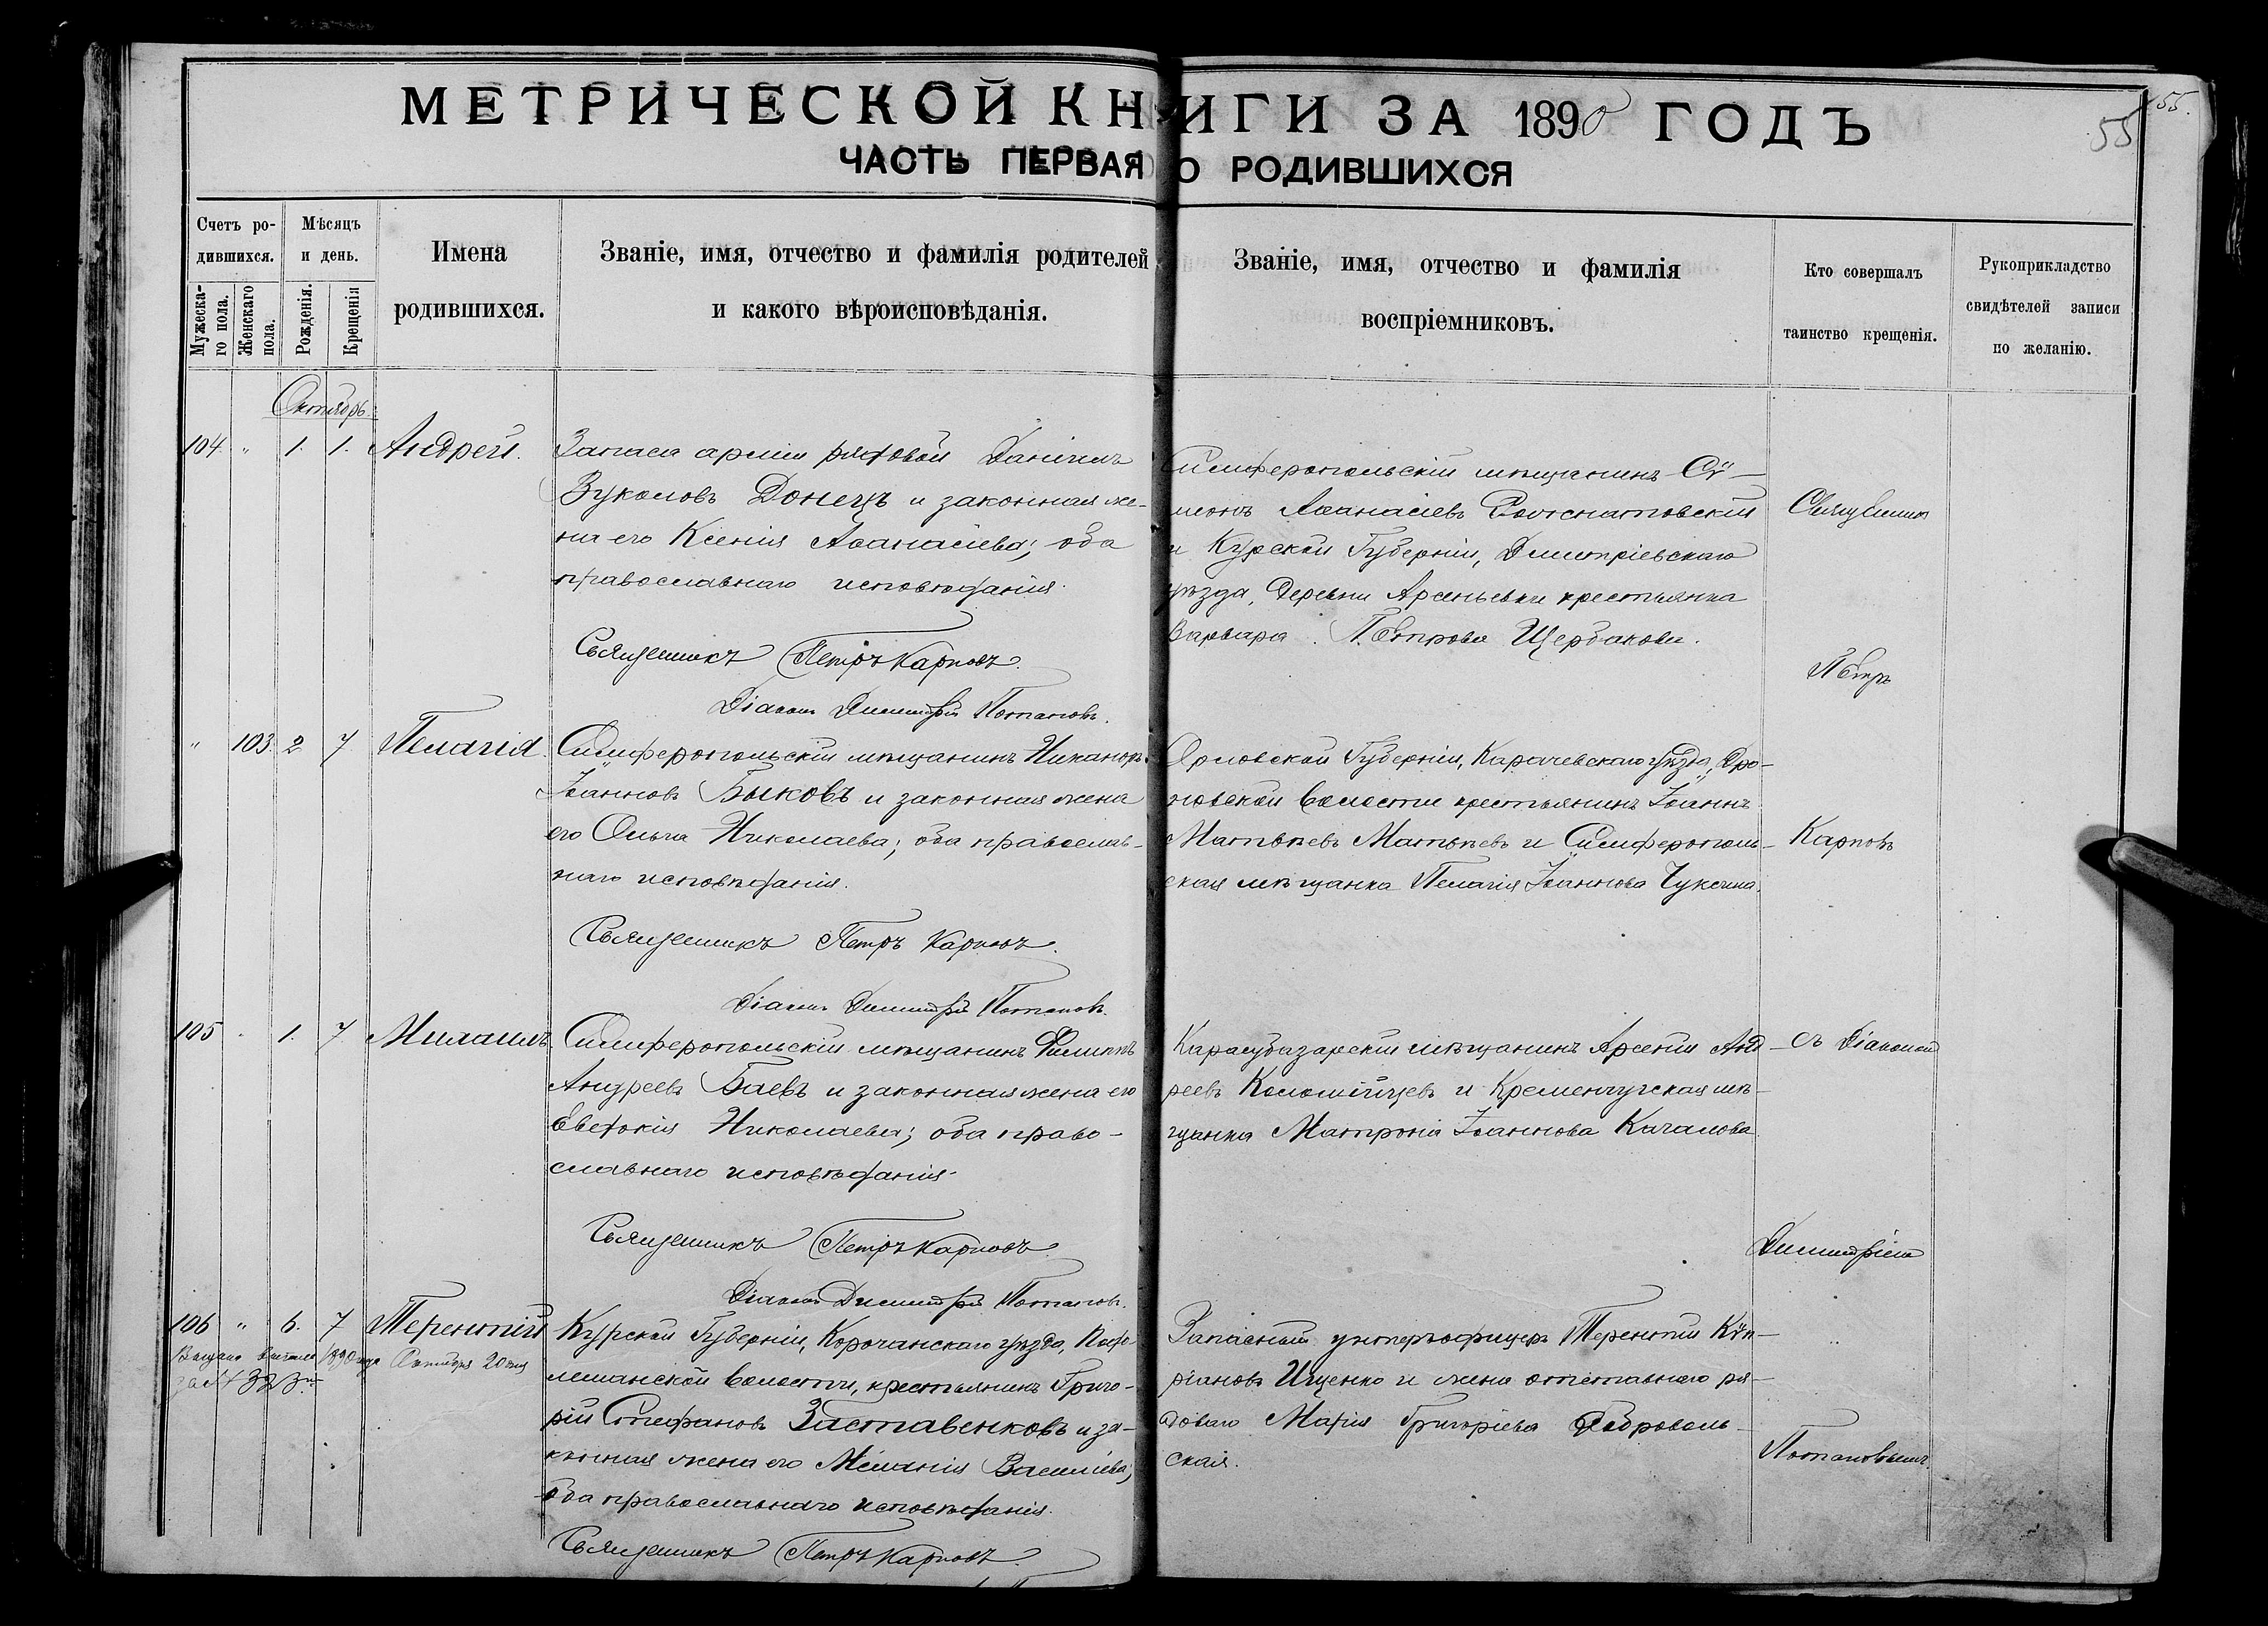 МЕТРИЧЕСКОЙ КНИГИ ЗА 1890 ГОДЪ
55.
55
ЧАСТЬ ПЕРВАЯ О РОДИВШИХСЯ
Счетъ ро-
дившихся.
Мужеска-
го пола.
Женскаго
пола.
Мѣсяцъ
и день.
Рожденія.
Крещенія
Имена
родившихся.
Званіе, имя, отчество и фамилія родителей
и какого вѣроисповѣданія.
Званіе, имя, отчество и фамилія
воспріемниковъ.
Кто совершалъ
таинство крещенія.
Рукоприкладство
свидѣтелей записи
по желанію.
Октябрь.
104. " 1. 1. Андрей.
Запаса арміи рядовой Даніилъ
Вуколовъ Донецъ и законная же-
на его Ксенія Аѳанасіева; оба
православнаго исповѣданія.
Священникъ Петръ Карповъ.
Діаконъ Димитрій Потаповъ.
Симферопольскій мѣщанинъ Сѵ-
меонъ Аѳанасіевъ
и Курской Губерніи, Димитріевскаго
уѣзда, деревни Арсеньевки крестьянка
Варвара Петрова Щербакова.
" 103. 2 7. Пелагія.
Симферопольскій мѣщанинъ Никаноръ
Іоанновъ Быковъ и законная жена
его Ольга Николаева; оба православ-
наго исповѣданія.
Священникъ Петръ Карповъ.
Діаконъ Димитрій Потаповъ.
Орловской Губерніи, Карачевскаго уѣзда, Дро-
новской волости крестьянинъ Іоаннъ
Матвѣевъ Матвѣевъ и Симферополь-
ская мѣщанка Пелагія Іоаннова
105 " 1. 7 Михаилъ.
Симферопольскій мѣщанинъ Филиппъ
Андреевъ Баевъ и законная жена его
Евдокія Николаева; оба право-
славнаго исповѣданія.
Священникъ Петръ Карповъ
Діаконъ Димитрій Потаповъ.
Карасубазарскій мѣщанинъ Арсеній Анд-
реевъ Коломійцевъ и Кременчугская мѣ-
щанка Матрона Іоаннова Качалова
106 " 6. 7 Терентій
Выдано 1890 года Октября 20 дня
за № 323
Курской Губерніи, Корочанскаго уѣзда,
волости, крестьянинъ Григо-
рій Стефановъ Заставенковъ и за-
конная жена его Меланія Василіева;
оба православнаго исповѣданія.
Священникъ Петръ Карповъ.
Запасный унтеръ-офицеръ Терентій Кѵп-
ріановъ Ищенко и жена отставнаго ря-
доваго Марія Григоріева Доброволь-
ская.
Священникъ
Петръ
Карповъ
съ Діакономъ
Димитріемъ
Потаповымъ.